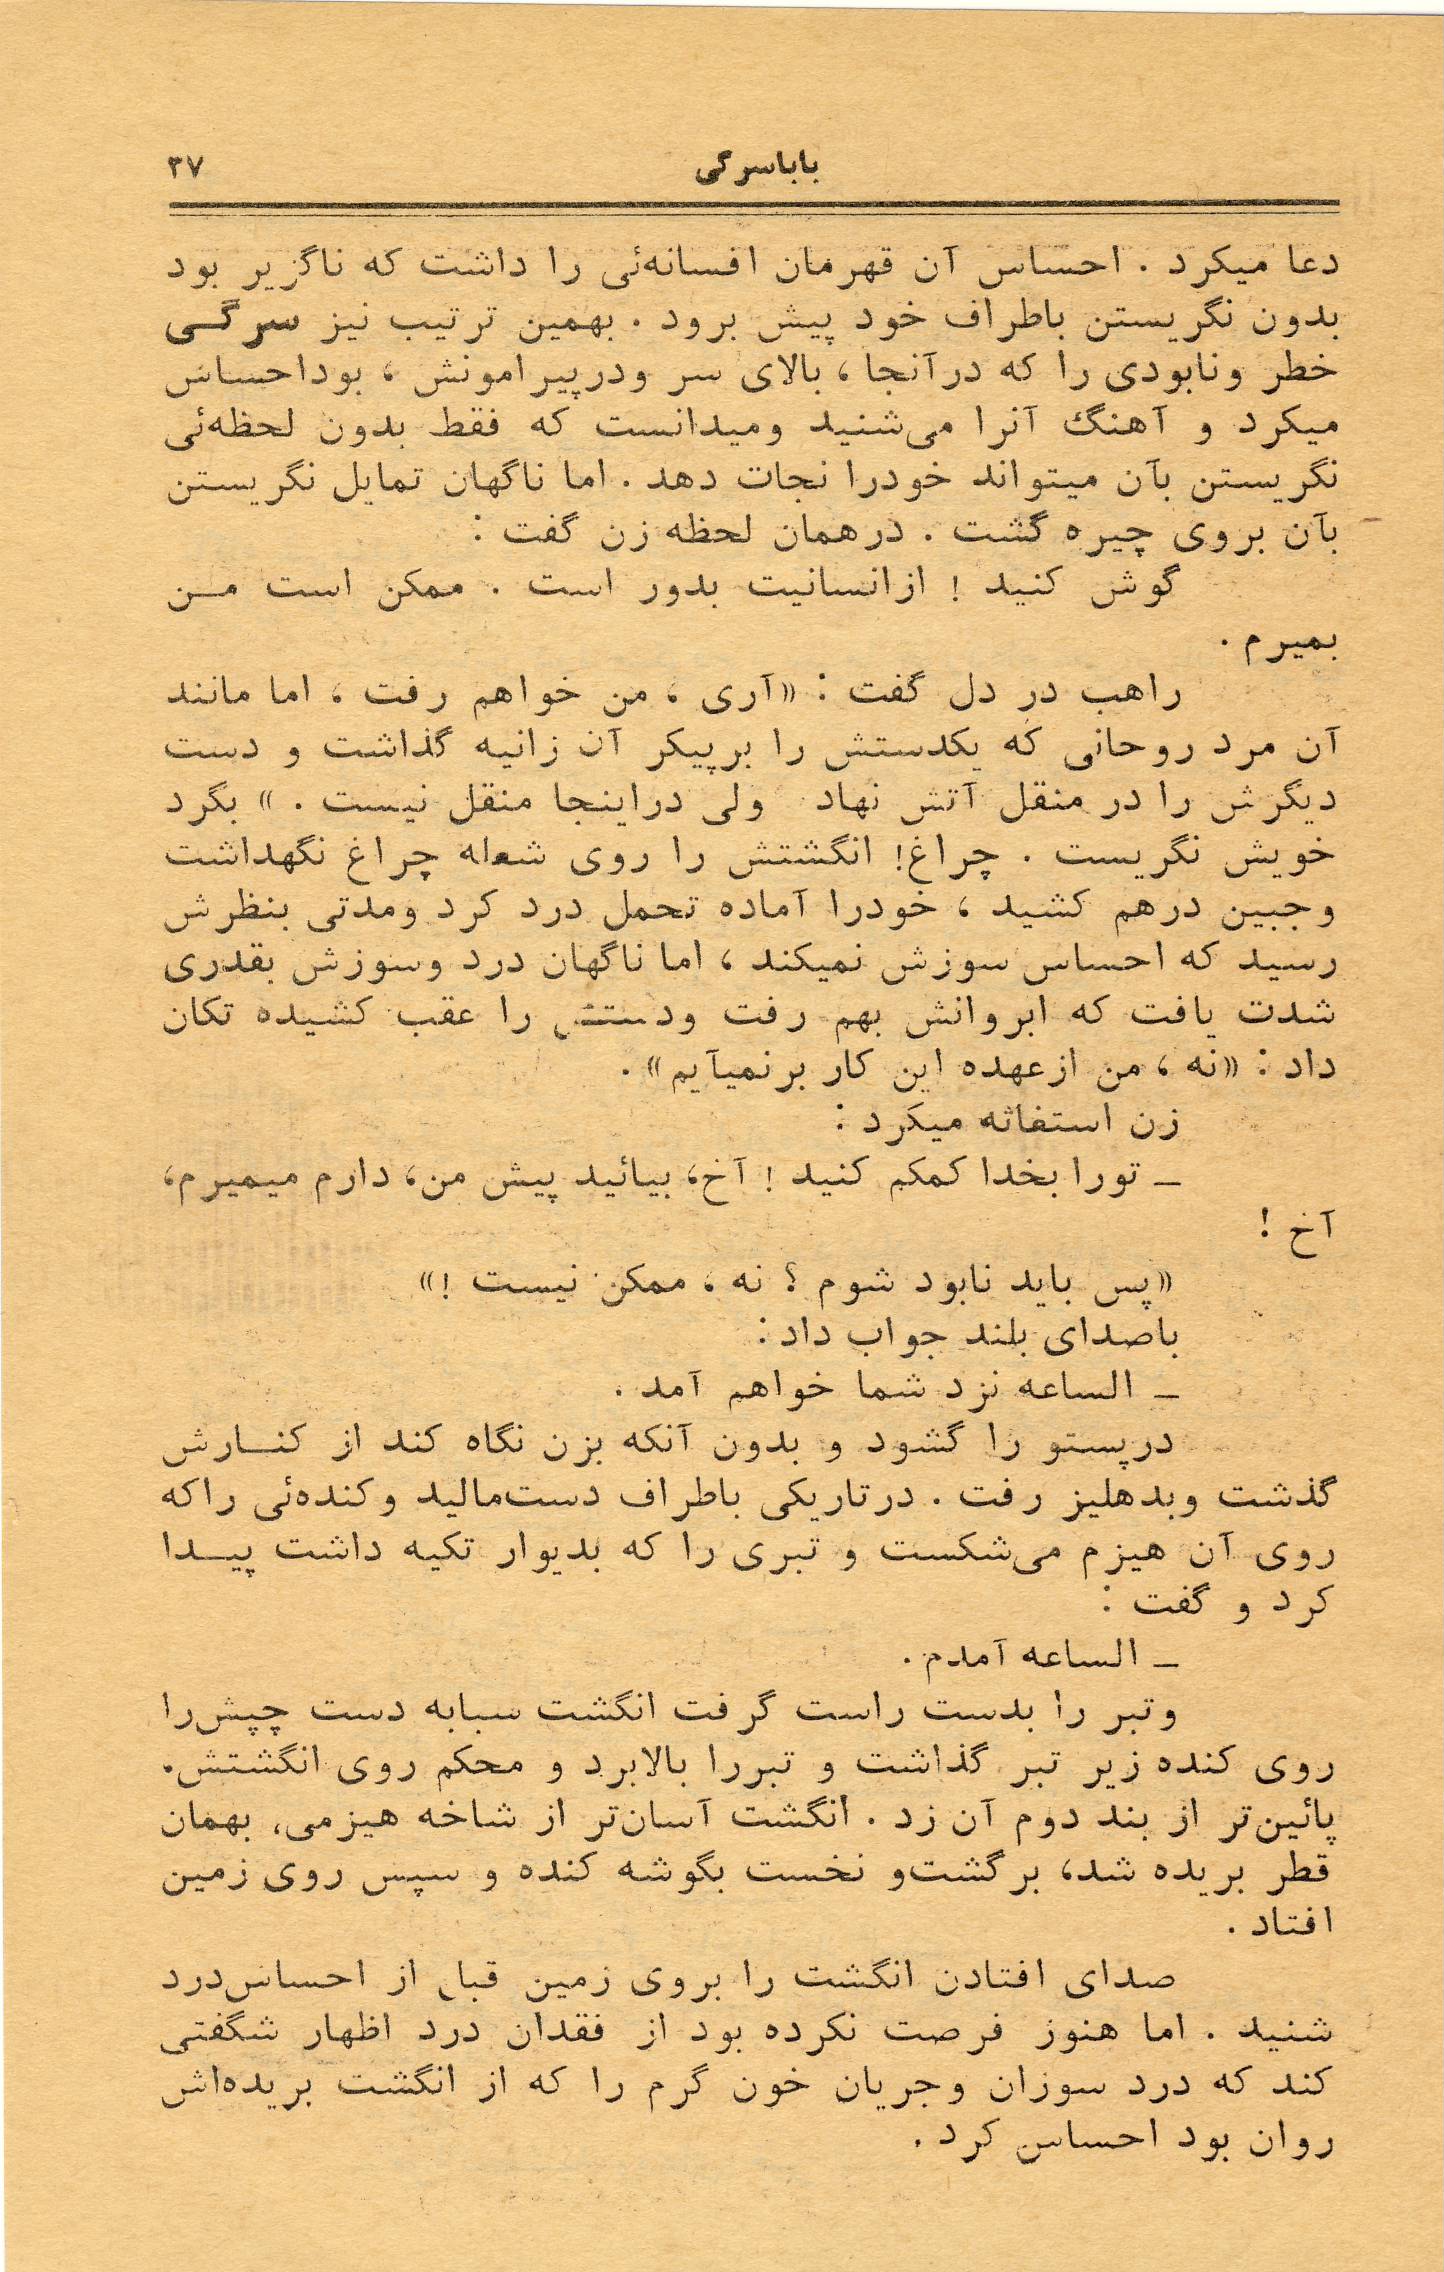 باباسرگی
۳۷
دعا میکرد . احساس آن قهرمان افسانه‌ئی را داشت که ناگزیر بود
بدون نگریستن باطراف خود پیش برود . بهمین ترتیب نیز سرگـی
خطر ونابودی را که درآنجا ، بالای سر ودرپیرامونش ، بوداحساس
میکرد و آهنگ آنرا می‌شنید ومیدانست که فقط بدون لحظه‌ئی
نگریستن بآن میتواند خودرا نجات دهد . اما ناگهان تمایل نگریستن
بآن بروی چیره گشت . درهمان لحظه زن گفت :
گوش کنید ! ازانسانیت بدور است . ممکن است مـن
بمیرم .
راهب در دل گفت : «آری ، من خواهم رفت ، اما مانند
آن مرد روحانی که یکدستش را برپیکر آن زانیه گذاشت و دست
دیگرش را در منقل آتش نهاد ولی دراینجا منقل نیست . » بگرد
خویش نگریست . چراغ! انگشتش را روی شعله چراغ نگهداشت
وجبین درهم کشید ، خودرا آماده تحمل درد کرد ومدتی بنظرش
رسید که احساس سوزش نمیکند ، اما ناگهان درد وسوزش بقدری
شدت یافت که ابروانش بهم رفت ودستش را عقب کشیده تکان
داد : «نه ، من ازعهده این کار برنمیآیم» .
زن استغاثه میکرد :
ـ تورا بخدا کمکم کنید ! آخ، بیائید پیش من، دارم میمیرم،
آخ !
«پس باید نابود شوم ؟ نه ، ممکن نیست !»
باصدای بلند جواب داد :
ـ الساعه نزد شما خواهم آمد .
درپستو را گشود و بدون آنکه بزن نگاه کند از کنـارش
گذشت وبدهلیز رفت . درتاریکی باطراف دست‌مالید وکنده‌ئی راکه
روی آن هیزم می‌شکست و تبری را که بدیوار تکیه داشت پیـدا
کرد و گفت :
ـ الساعه آمدم .
وتبر را بدست راست گرفت انگشت سبابه دست چپش‌را
روی کنده زیر تبر گذاشت و تبررا بالابرد و محکم روی انگشتش.
پائین‌تر از بند دوم آن زد . انگشت آسان‌تر از شاخه هیزمی، بهمان
قطر بریده شد، برگشت‌و نخست بگوشه کنده و سپس روی زمین
افتاد .
صدای افتادن انگشت را بروی زمین قبل از احساس‌درد
شنید . اما هنوز فرصت نکرده بود از فقدان درد اظهار شگفتی
کند که درد سوزان وجریان خون گرم را که از انگشت بریده‌اش
روان بود احساس کرد .